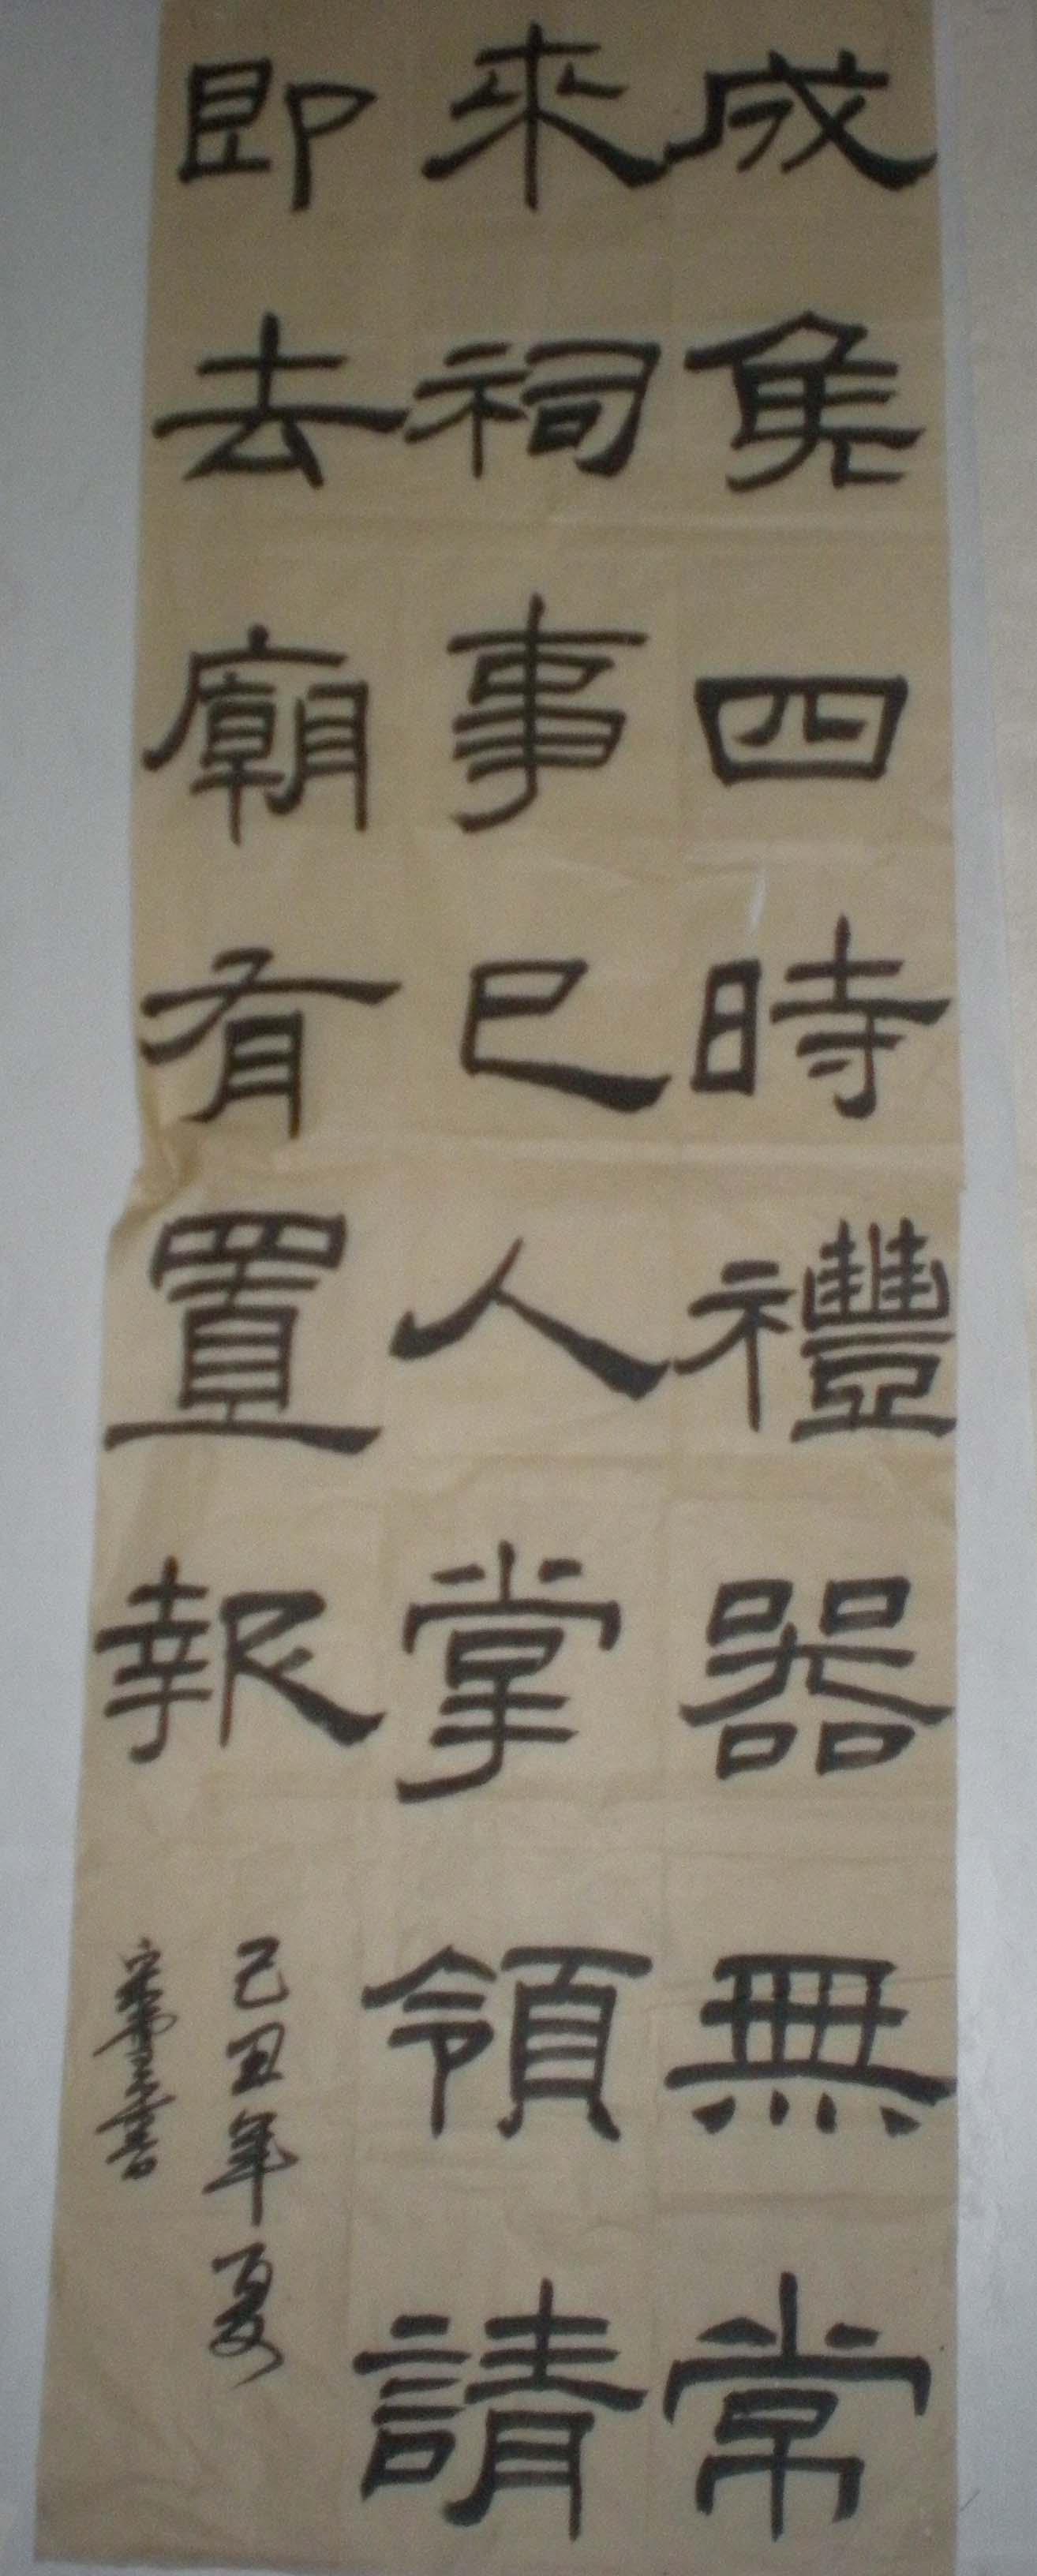 成侯四時禮器無常
來祠事巳人掌領請
即去廟有置報
己丑年夏